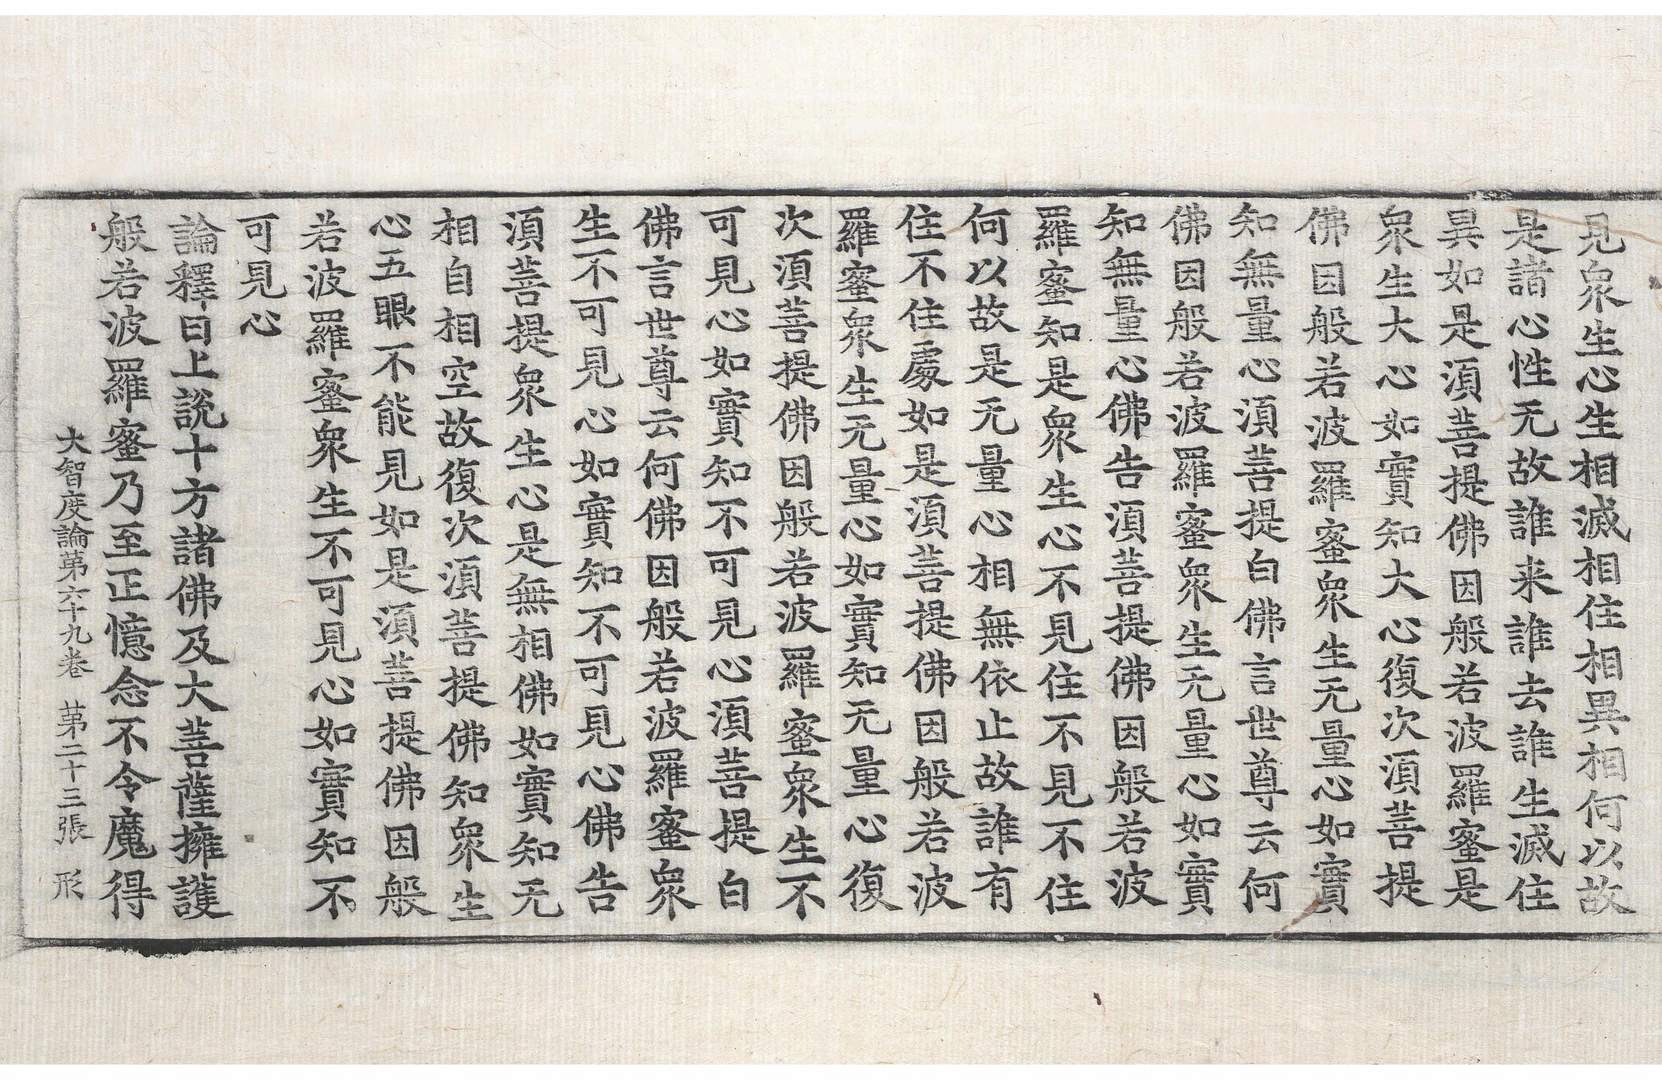 見衆生心生相滅相住相異相何以故
是諸心性无故誰来誰去誰生滅住
異如是湏菩提佛因般若波羅蜜是
衆生大心如實知大心復次湏菩提
佛因般若波羅蜜衆生无量心如實
知無量心湏菩提白佛言世尊云何
佛因般若波羅蜜衆生无量心如實
知無量心佛告湏菩提佛因般若波
羅蜜知是衆生心不見住不見不住
何以故是无量心相無依止故誰有
住不住處如是湏菩提佛因般若波
羅蜜衆生无量心如實知无量心復
次湏菩提佛因般若波羅蜜衆生不
可見心如實知不可見心湏菩提白
佛言世尊云何佛因般若波羅蜜衆
生不可見心如實知不可見心佛告
湏菩提衆生心是無相佛如實知无
相自相空故復次湏菩提佛知衆生
心五眼不能見如是湏菩提佛因般
若波羅蜜衆生不可見心如實知不
可見心
論釋曰上說十方諸佛及大菩薩擁護
般若波羅蜜乃至正憶念不令魔得
大智度論苐六十九卷 苐二十三張 形